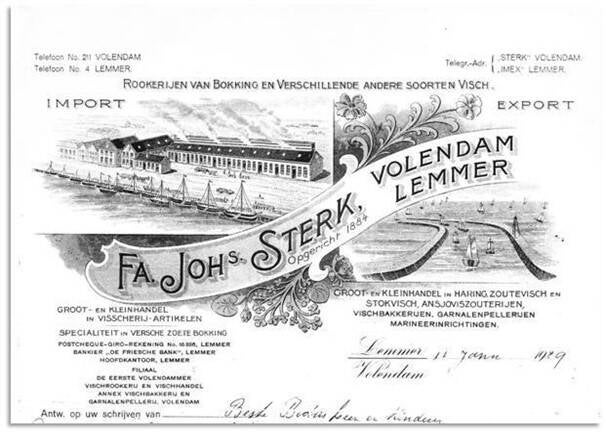 Telefoon No. 211 VOLENDAM
Telefoon No. 4 LEMMER.
Telegr.-Adr. „STERK” VOLENDAM.
„IMEX” LEMMER.
ROOKERIJEN VAN BOKKING EN VERSCHILLENDE ANDERE SOORTEN VISCH.
IMPORT
EXPORT
FA. JOHS. STERK, VOLENDAM
LEMMER
Opgericht 1884
GROOT- EN KLEINHANDEL
IN VISSCHERIJ-ARTIKELEN
SPECIALITEIT IN VERSCHE ZOETE BOKKING
POSTCHEQUE-GIRO-REKENING No. 16.896, LEMMER
BANKIER „DE FRIESCHE BANK”, LEMMER
HOOFDKANTOOR, LEMMER
FILIAAL
DE EERSTE VOLENDAMMER
VISCHROOKERIJ EN VISCHHANDEL
ANNEX VISCHBAKKERIJ EN
GARNALENPELLERIJ, VOLENDAM
GROOT- EN KLEINHANDEL IN HARING, ZOUTEVISCH EN
STOKVISCH, ANSJOVISZOUTERIJEN,
VISCHBAKKERIJEN, GARNALENPELLERIJEN
MARINEERINRICHTINGEN.
Lemmer 11 Janu 1929
Volendam
Antw. op uw schrijven van
Beste Broer en kinders